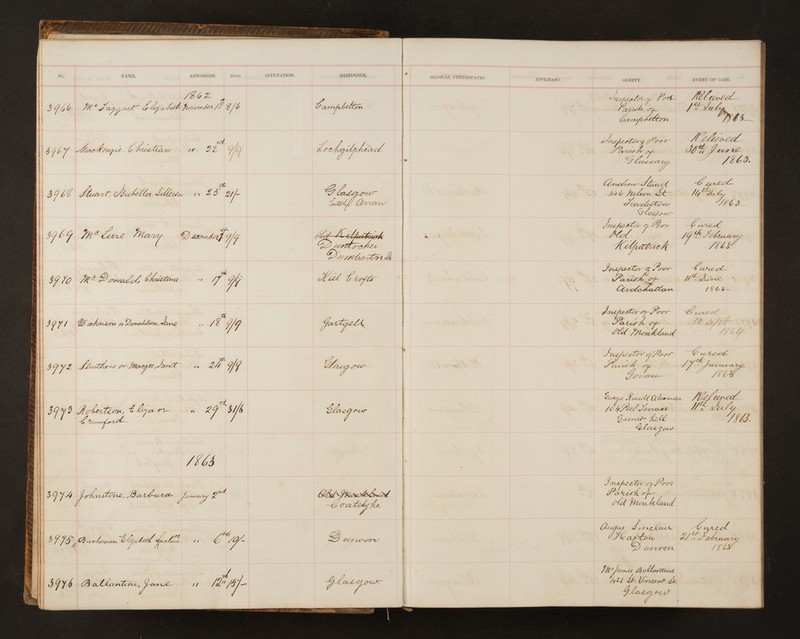 No. NAME. ADMISSION. OCCUPATION. RESIDENCE. MEDICAL CERTIFICATES APPLICANT SURETY. EVENT OF CASE.
1862
3966 McTaggart Elizabeth November 8/6 Campbelton Inspector of Poor Parish of Campbelton Relieved 1st July 1863
3967 Mackenzie Christian " 22nd 9/9 Lochgilphead Inspector of Poor Parish of Glassary Relieved 30th June 1863.
3968 Stuart, Isabella " 25th 21/- Glasgow Arran Andrew Stuart 146 Nelson St Tradeston Glasgow Cured 14th July 1863
3969 McLure Mary December 9/9 Old Kilpatrick Duntocher Dumbartonshe Inspector of Poor Old Kilpatrick Cured 19th February 1863
3970 McDonald Christina " 17th 9/9 Hill Crofts Inspector of Poor Parish of Ardchattan Cured 11th June 1863
3971 Dickinson or Donaldson, Jane " 18th 9/9 Gartgill Inspector of Poor Parish of Old Monkland Cured 1864
3972 Struthers or Magee, Janet " 24th 9/9 Glasgow Inspector of Poor Parish of Govan Cured 17th January 1863
3973 Robertson, Eliza or Crawford " 29th 31/6 Glasgow George Russell Alexander 104 Peel Terrace Garnet hill Glasgow Relieved 11th July 1863.
1863
3974 Johnstone, Barbara January 2nd Old Monkland Coatdyke Inspector of Poor Parish of Old Monkland
3975 Buchanan Elizabeth " 6th Dunoon Angus Sinclair Dunoon Cured 21st February 1863
3976 Ballantine, Jane " 12th 15/- Glasgow Mr James Ballantine 421 St. Vincent St. Glasgow